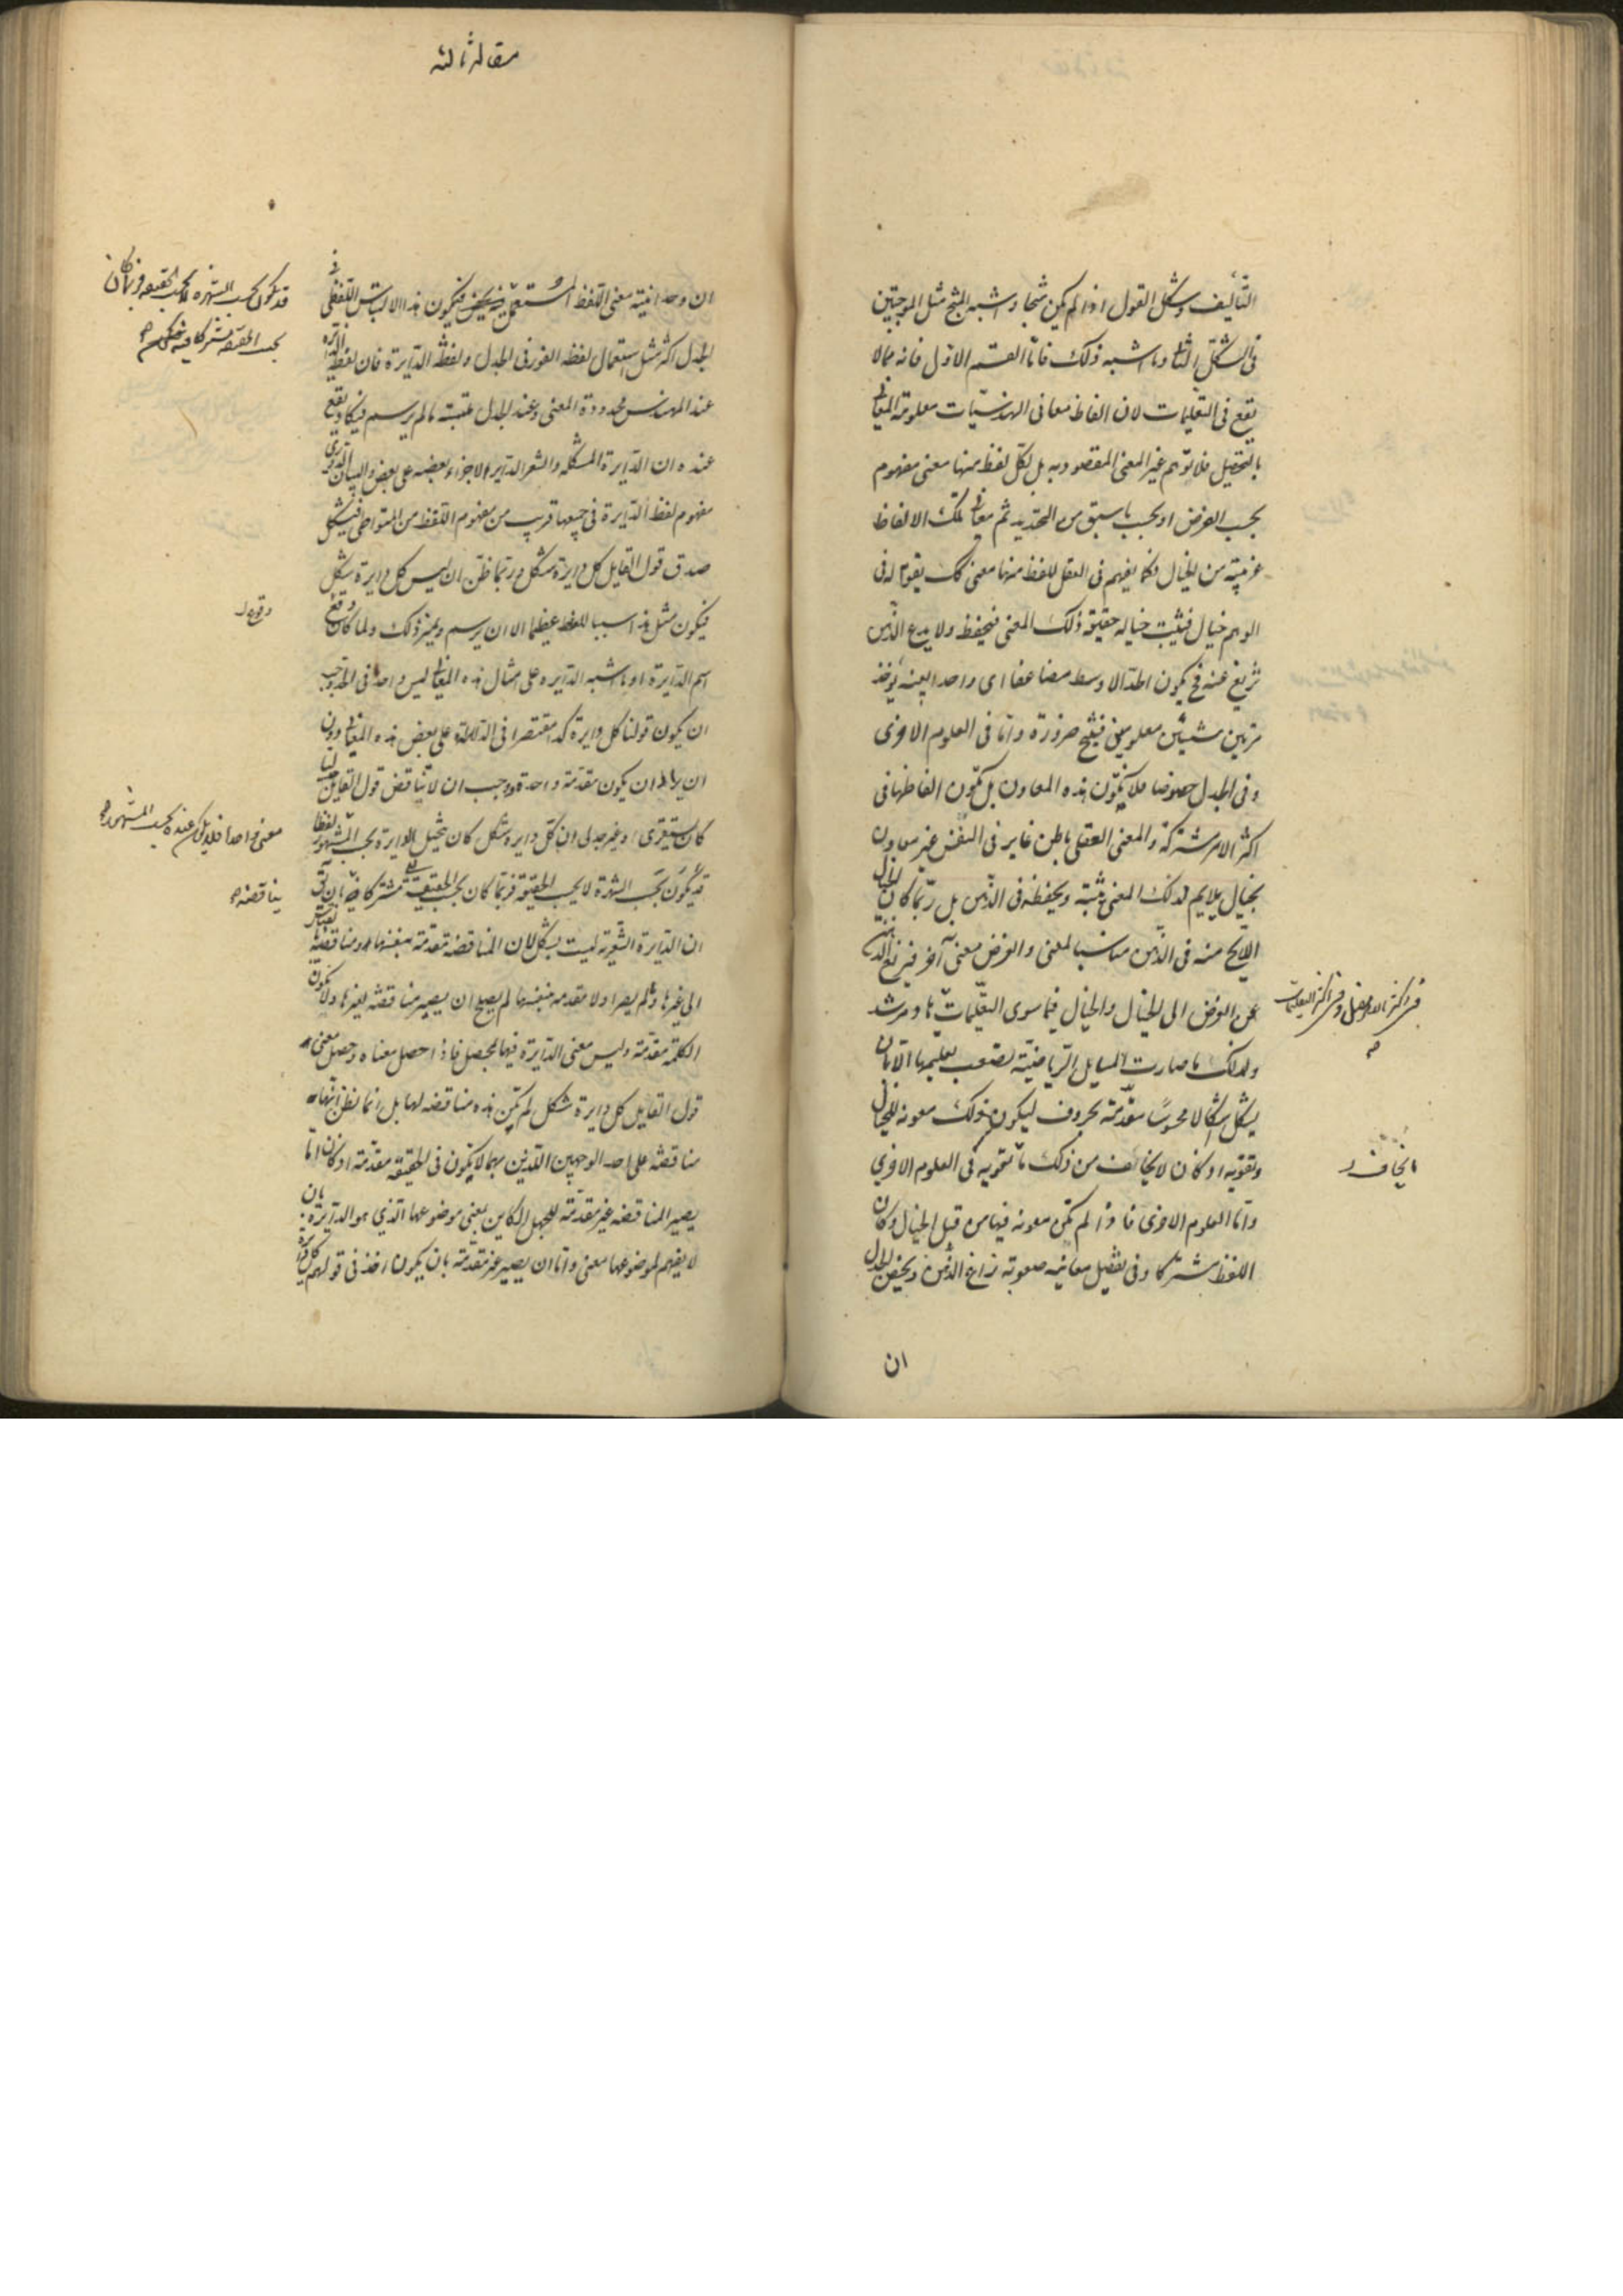 التأليف وشكل القول اذا لم يكن منتجا وشبه المنتج مثل الموجبتين
فى الشكل الثانى وما اشبه ذلك فامّا القسم الاول فانه مما لا
يقع فى التعليمات لان الفاظ معانى الهندسيّات معلومة المعانى
بالتحصيل فلا توهم غير المعنى المقصود به بل لكلّ لفظ منها معنى مفهوم
بحسب الغرض او بحسب ما سبق من التحديد ثم معانى تلك الالفاظ
قريبة من الخيال فكما يفهم فى العقل للفظ منها معنى كك يقوم له فى
الوهم خيال فيثبت خياله حقيقة ذلك المعنى فيحفظه ولا يدع الذهن
يزيغ عنه فح يكون الحدّ الاوسط مضاعفا اى واحدا بعينه يؤخذ
مرتين شيئين معلومين فينتج ضرورة وامّا فى العلوم الاخرى
وفى الجدل خصوصا فلا يكون هذه المعاون بل تكون الفاظها فى
اكثر الامر مشتركة والمعنى العقلى باطن غاير فى النفس غير معاون
بخيال يلايم لذلك المعنى يثبته ويحفظه فى الذّهن بل ربّما كان الخيال
اللايح منه فى الذّهن مناسبا لمعنى والغرض معنى آخر فيزيغ الذهن
عن الغرض الى الخيال والخيال فيما سوى التعليمات
فى اكثر الامر مضل وفى اكثر التعليمات
هاد ومرشد
ولذلك ما صارت المسايل الرّياضيّة يصعب تعليمها الا بان
يشكل اشكالا محسوسًا مقدّمة بحروف ليكون ذلك معونة للخيال
وتقويه اذ كان لا يخاف من ذلك ما
يخاف
تقويه فى العلوم الاخرى
وامّا العلوم الاخرى فاذا لم تكن معونة فيها من قبل الخيال وكان
اللفظ مشتركا وفى تفصيل معانيه صعوبة زاغ الذّهن ويخص الجدل
ان
مقاله ثالثه
ان وحدانيّة معنى اللّفظ المستعمل فيه
قد يكون بحسب الشهرة لا بحسب الحقيقة وربما كان
بحسب الحقيقة مشتركا فيه
فيكون هذا الالتباس اللفظى فى
الجدل اكثر مثل استعمال لفظه الفور فى الجدل ولفظه الدّايرة فان لفظة الدايرة
عند المهندس محدودة المعنى وعند الجدل مشتبه ما لم يرسم فيكاد يقع
عنده ان الدّايرة المشكله والشعر الدّاير الاجزاء بعضه على بعض والبيان الدورى
مفهوم لفظ الدّايرة فى جميعها قريب من مفهوم اللّفظ من المتواطى فيشكل
صدق قول القايل كل دايرة شكل وربّما ظنّ ان ليس كل دايرة شكل
فيكون مثل هذا سببا للغلط عظيما الا ان يرسم ويميز ذلك ولما كان وقع
وقوع
اسم الدّايرة وما اشبه الدّايره على امثال هذه المعانى ليس واحدا فى الحد وجب
ان يكون قولنا كل دايرة كذا مقتصرا فى الدلالة على بعض هذه المعانى دون
ان يراد ان يكون مقدّمة واحدة ووجب ان لا يناقض قول القايل
كان يستقرى او غير جدلى ان كلّ دايرة شكل كان يتخيل الدايرة بحسب المشهور لفظا
معنى واحدا فلا يكن عنده بحسب المشهور
قد يكون بحسب الشهرة لا بحسب الحقيقة فربّما كان بحسب الحقيقة مشتركا فيه بان يق
يناقضه
ان الدّايرة الشّعرية ليست بشكل لان المناقضة مقدّمة بنفسها ومناقضة بالقياس
الى غيرها وما لم يصر اولا مقدمه بنفسها لم يصلح ان يصير مناقضة لغيرها ولا يكون
الكلمة مقدّمة وليس معنى الدّايرة فيها محصل فاذا حصل معناه وحصل معنى
قول القايل كل دايرة شكل لم يكن هذه مناقضه لها بل انما نظن انّها
مناقضة على احد الوجهين اللذين بهما لا يكون فى الحقيقة مقدّمة اذ كان امّا
يصير المناقضه غير مقدّمة للجهل الكاين بمعنى موضوعها الّذي هو الدّايرة بان
لا يفهم لموضوعها معنى وامّا ان يصير غير مقدّمة بان يكون اخذ فى قولهم كل دايرة